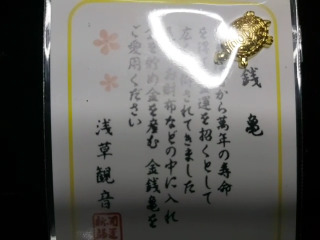 銭亀
から萬年の寿命
運を招くとして
されてきました
お財布などの中に入れ
貯め金を産む 金銭亀を
ご愛用ください
浅草観音